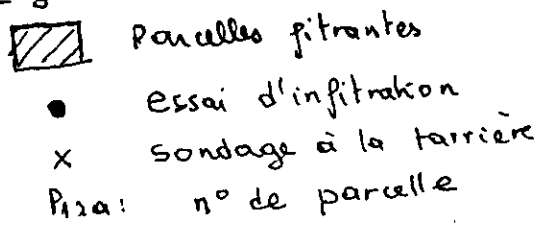 Parcelles fitrantes
essai d'infitration
x sondage à la tarrière
P12a: n° de parcelle